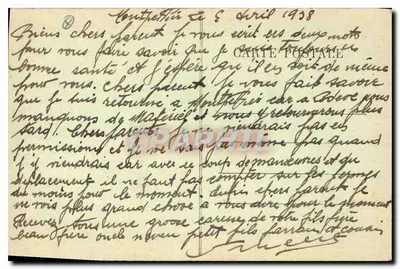 Montpellier le 5 Avril 1938
Biens chers parent Je vous écrit ses deux mots
pour vous faire savoir que je
CARTE POSTALE
bonne santé et J'espère qu'il en soit de même
pour vous. chers parent Je vous fait savoir
que Je suis retourné a Montpellier car a nous
manquons de Materiel et nous y retournerons plus
tard. Chers parents Je ne viendrais pas en
permissions et Je ne sais pas même pas quand
J'y viendrais car avec ce coup de manœuvres et du
déplacement il ne faut pas compter sur les permes
du moins pour le moment. chers parent Je
ne vois plus grand chose a vous dire pour le moment
Recevez tous une grosse caresse de votre fils frère
beau frère oncle neveu petit fils parrain et cousin